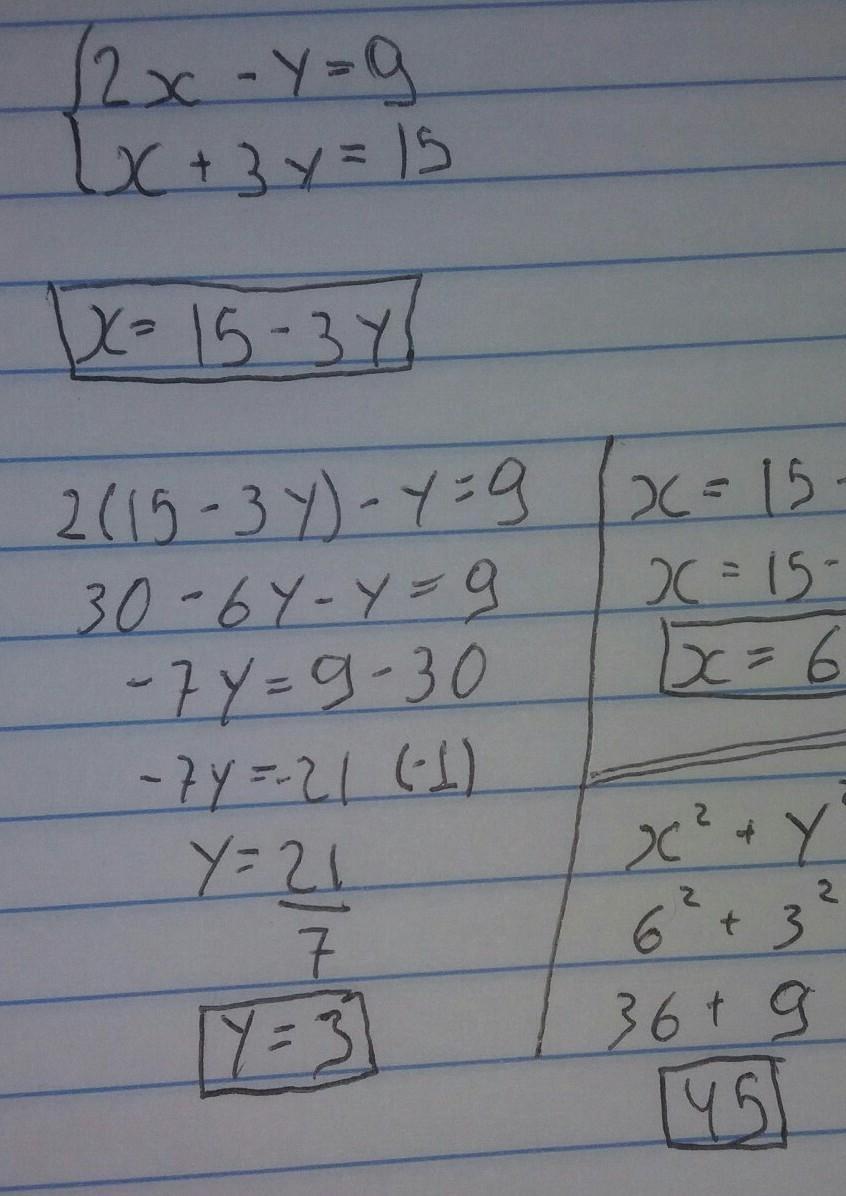 2x - y = 9
x + 3y = 15
x = 15 - 3y
2(15 - 3y) - y = 9
30 - 6y - y = 9
-7y = 9 - 30
-7y = -21 (-1)
y = 21
7
y = 3
x = 15 -
x = 15 -
x = 6
x² + y²
6² + 3²
36 + 9
45